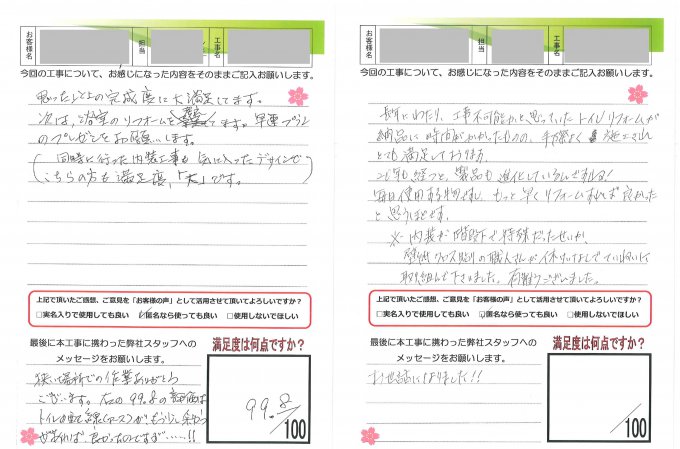 お客様名
担当
工事名
今回の工事について、お感じになった内容をそのままご記入お願いします。
思った以上の完成度に大満足してます。
次は、浴室のリフォームを ます。早速プラン
のプレゼンをお願いします。
(同時に行った内装工事も気に入ったデザインで
こちらの方も満足度、「大」です。
上記で頂いたご感想、ご意見を「お客様の声」として活用させて頂いてよろしいですか?
□実名入りで使用しても良い ☑匿名なら使っても良い □使用しないでほしい
最後に本工事に携わった弊社スタッフへの
メッセージをお願いします。
狭い場所での作業ありがとう
ございます。左の99.8の評価は
トイレの が、もう少し
があれば、良かったのですが……!!
満足度は何点ですか?
99.8
/100
お客様名
担当
工事名
今回の工事について、お感じになった内容をそのままご記入お願いします。
長年にわたり、工事不可能かと思っていたトイレリフォームが
納品に時間がかかったものの、手際よく 施工され
とても満足しております。
年も経つと、製品も進化しているんですね!
毎日使用する物ですし、もっと早くリフォームすれば良かった
と思うほどです。
※内装が階段下で特殊だったせいか、
壁紙クロス貼りの職人さんが休けいなしでていねいに
取り組んで下さりました。有難うございました。
上記で頂いたご感想、ご意見を「お客様の声」として活用させて頂いてよろしいですか?
□実名入りで使用しても良い ☑匿名なら使っても良い □使用しないでほしい
最後に本工事に携わった弊社スタッフへの
メッセージをお願いします。
お世話になりました!!
満足度は何点ですか?
/100